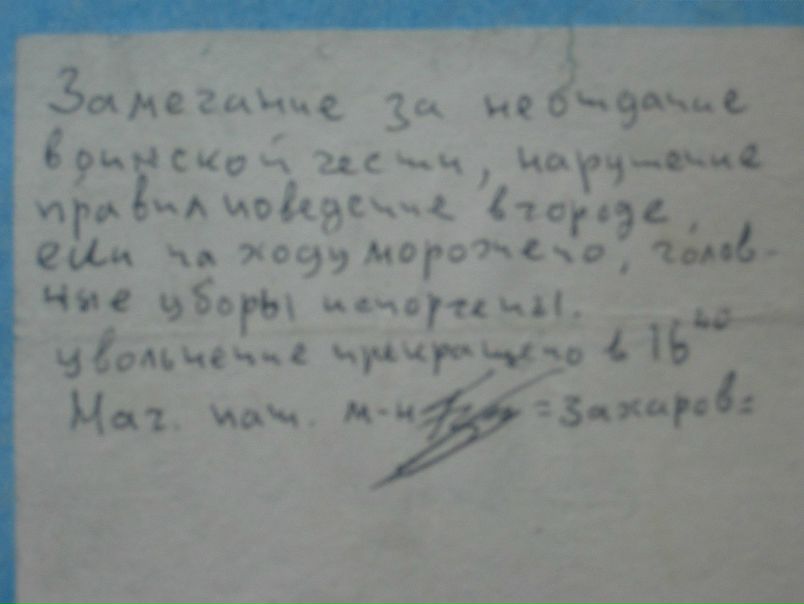 Замечание за неотдание
воинской чести, нарушение
правил поведение в городе,
ели на ходу морожено, голов-
ные уборы испорчены.
увольнение прекращено в 16 40
Нач. пат. м-н =Захаров=